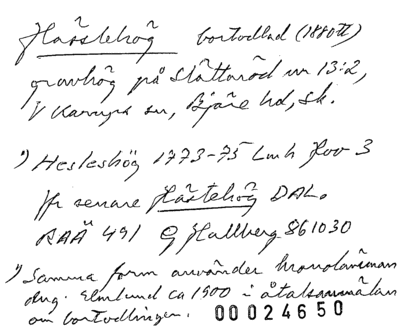 Hästehög bortodlad (1880tl)
gravhög på Slättaröd nr 13:2,
V Karups sn, Bjäre hd, Sk.
1) Hesleshög 1773-75 Lmh Hov 3
Jfr senare Hästehög DAL.
RAÄ 491 G Hallberg 861030
1) Samma form använder kronolänsman
Aug. Elmlund ca 1900 i åtalsanmälan
om bortodlingen. 00024650